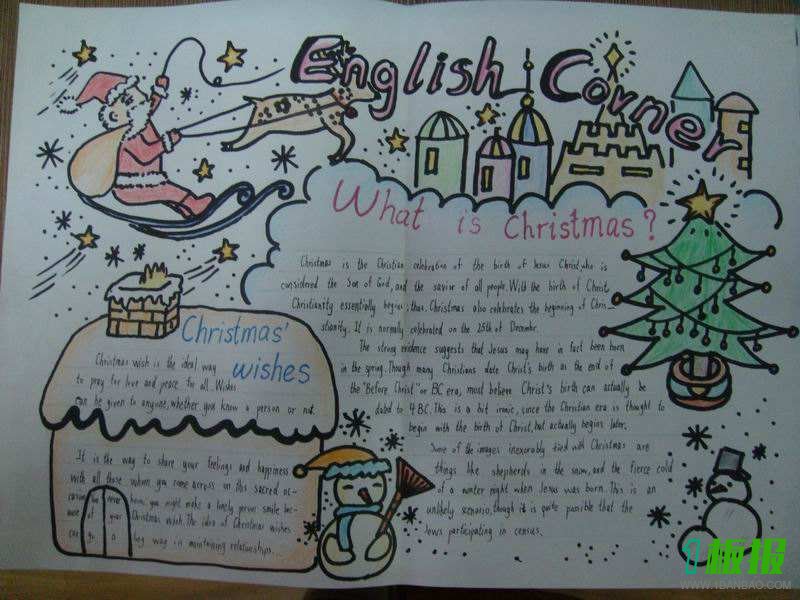 English Corner
What is Christmas?
Christmas is the Christian celebration of the birth of Jesus Christ, who is
considered the Son of God, and the savior of all people. With the birth of Christ
Christianity essentially begins, thus, Christmas also celebrates the beginning of Chris-
stianity. It is normally celebrated on the 25th of December.
The strong evidence suggests that Jesus may have in fact been born
in the spring. Though many Christians date Christ's birth as the end of
the "Before Christ" or BC era, most believe Christ's birth can actually be
dated to 4 B.C. This is a bit ironic, since the Christian era is thought to
begin with the birth of Christ, but actually begins later.
Some of the images inexorably tied with Christmas are
things like shepherds in the snow, and the fierce cold
of a winter night when Jesus was born. This is an
unlikely scenario, though it is quite possible that the
Jews participating in census.
Christmas'
wishes
Christmas wish is the ideal way
to pray for love and peace for all. Wishes
can be given to anyone, whether you know a person or not.
It is the way to share your feelings and happiness
with all those whom you come across on this sacred oc-
casion. never know, you might make a lonely person smile bec-
ause of your Christmas wish. The idea of Christmas wishes
can go a long way in maintaining relationships.
1板报
WWW.1BANBAO.COM